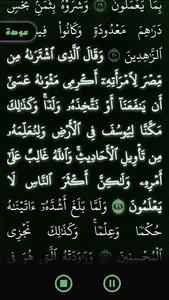 بِمَا يَعْمَلُونَ ﴿١٩﴾ وَشَرَوْهُ بِثَمَنٍ بَخْسٍ
دَرَٰهِمَ مَعْدُودَةٍ وَكَانُوا۟ فِيهِ مِنَ
عودة
ٱلزَّٰهِدِينَ ﴿٢٠﴾ وَقَالَ ٱلَّذِى ٱشْتَرَىٰهُ مِن
مِّصْرَ لِٱمْرَأَتِهِۦٓ أَكْرِمِى مَثْوَىٰهُ عَسَىٰٓ
أَن يَنفَعَنَآ أَوْ نَتَّخِذَهُۥ وَلَدًا ۚ وَكَذَٰلِكَ
مَكَّنَّا لِيُوسُفَ فِى ٱلْأَرْضِ وَلِنُعَلِّمَهُۥ
مِن تَأْوِيلِ ٱلْأَحَادِيثِ ۚ وَٱللَّهُ غَالِبٌ عَلَىٰٓ
أَمْرِهِۦ وَلَٰكِنَّ أَكْثَرَ ٱلنَّاسِ لَا
يَعْلَمُونَ ﴿٢١﴾ وَلَمَّا بَلَغَ أَشُدَّهُۥٓ ءَاتَيْنَٰهُ
حُكْمًا وَعِلْمًا ۚ وَكَذَٰلِكَ نَجْزِى
ٱلْمُحْسِنِينَ ﴿٢٢﴾ وَرَٰوَدَتْهُ ٱلَّتِى هُوَ فِى